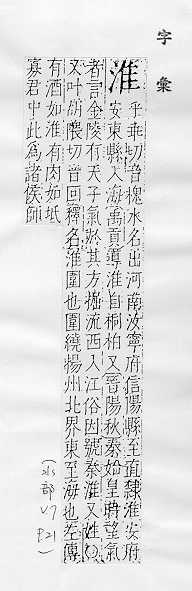 字彙
淮 乎乖切音槐水名出河南汝寧府信陽縣至直隸淮安府
安東縣入海禹貢導淮自桐柏又晉陽秋秦始皇時望氣
者記金陵有天子氣於其方掘流西入江俗因號秦淮又姓〇
又叶胡隈切音回釋名淮圍也圍繞揚州北界東至海也左傳
有酒如淮有肉如坻
寡君中此為諸侯師
(水部 V7 P21)